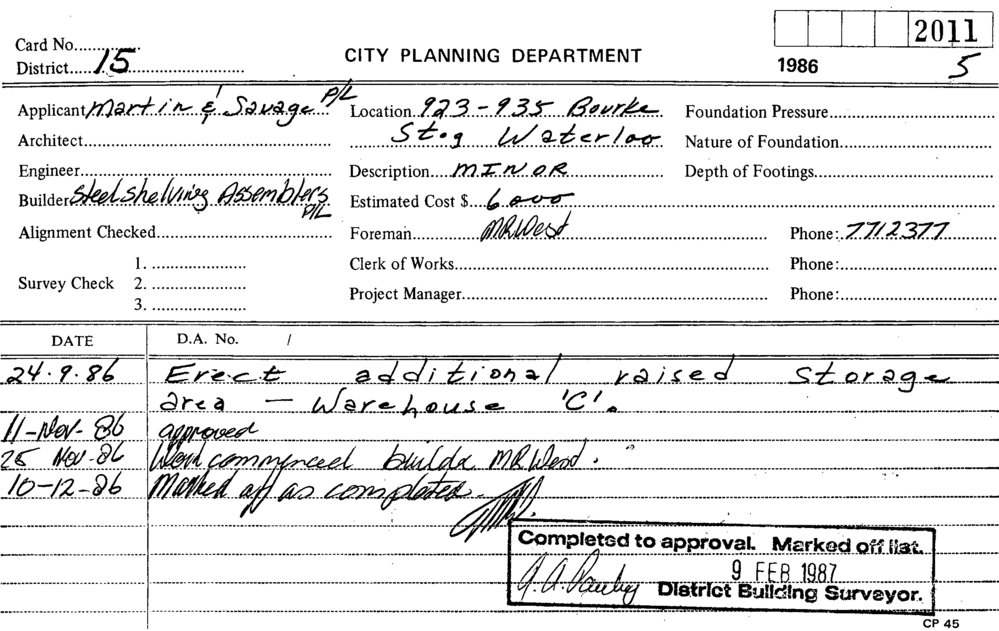 2011
Card No.
District 15
CITY PLANNING DEPARTMENT
1986 5
Applicant Martin & Savage P/L
Location 923-935 Bourke
Stog Waterloo
Foundation Pressure
Architect
Nature of Foundation
Engineer
Description MINOR
Depth of Footings
Builder Steel Shelving Assemblers P/L
Estimated Cost $ 6000
Alignment Checked
Foreman MR West
Phone: 7712377
Survey Check
1.
2.
3.
Clerk of Works
Phone:
Project Manager
Phone:
DATE D.A. No. /
24.9.86 Erect additional raised storage
area — Warehouse 'C'.
11-Nov-86 approved
25 Nov-86 Work commenced MR West.
10-12-86 Marked off as completed.
Completed to approval. Marked off list.
9 FEB 1987
District Building Surveyor.
CP 45